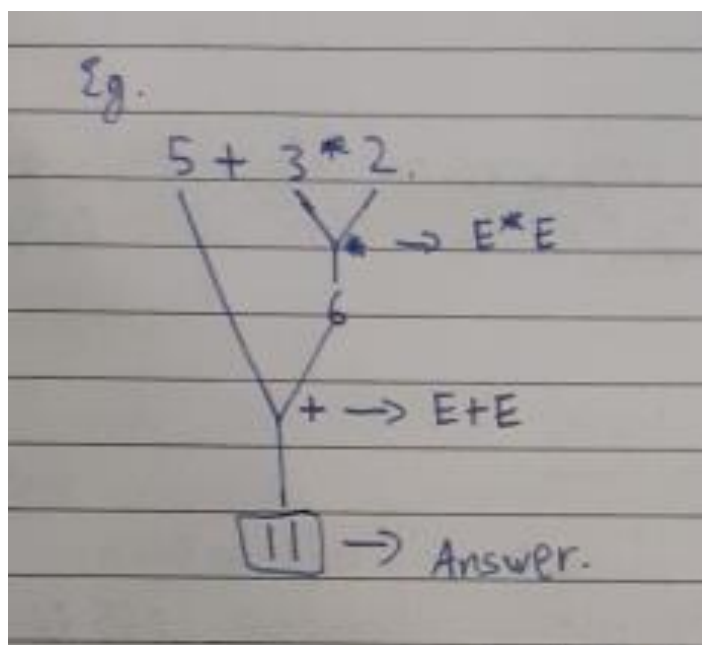 Eg.
5 + 3 * 2.
* → E*E
6
+ → E+E
11 → Answer.